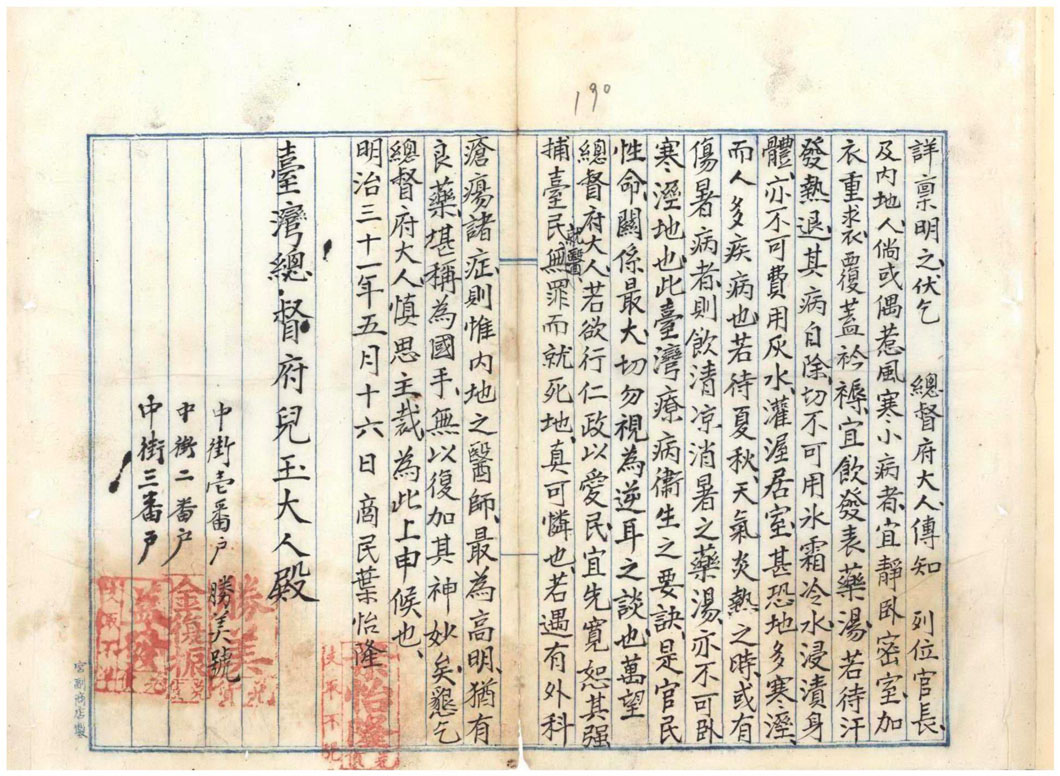 190
詳稟明之伏乞　總督府大人傳知　列位官長、
及內地人倘或偶惹風寒小病者、宜靜卧密室、加
衣重裘、覆蓋衿褥、宜飲發表藥湯、若待汗
發熱退、其病自除、切不可用氷霜冷水浸漬身
體、亦不可費用灰水灌渥居室、甚恐地多寒溼、
而人多疾病也、若待夏秋、天氣炎熱之時、或有
傷暑病者、則飲清凉消暑之藥湯、亦不可卧
寒溼地也、此臺灣療病衛生之要訣、是官民
性命關係最大、切勿視為逆耳之談也、萬望
總督府大人、若欲行仁政以愛民、宜先寬恕其強
捕臺民就醫、無罪而就死地、真可憐也、若遇有外科
瘡瘍諸症、則惟內地之醫師、最為高明、猶有
良藥、堪稱為國手、無以復加其神妙矣、懇乞
總督府大人、慎思主裁、為此上申候也、
明治三十一年五月十六日　商民葉怡隆
臺灣總督府兒玉大人殿
中街壱番户　勝美號
勝美
中街二番户
金復振
中街三番户
益發
宮副商店製